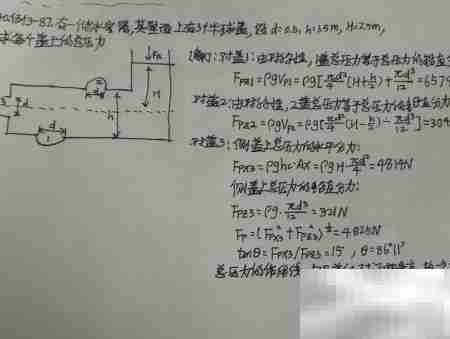 有一储水容器,其壁面上有3个半球盖,设 d=0.5m, h=1.5m, H=2.5m,
求各个盖上的总压力
解:对盖1:由对称性,总压力等于总压力的铅直分
F_{PZ1}=ρgV_{P1}=ρg[\frac{πd²}{4}(H+\frac{h}{2})+\frac{πd³}{12}]=6579
对盖2:由对称性,2盖总压力等于总压力的铅直分力
F_{PZ2}=ρgV_{P2}=ρg[\frac{πd²}{4}(H-\frac{h}{2})-\frac{πd³}{12}]=304
对盖3:侧盖上总压力的水平分力:
F_{PX3}=ρgh_c·A_x=ρgH·\frac{πd²}{4}=4814N
侧盖上总压力的铅直分力:
F_{PZ3}=ρg·\frac{πd³}{12}=321N
F_P=(F_{PX3}²+F_{PZ3}²)^{\frac{1}{2}}=4825N
tanθ=F_{PX3}/F_{PZ3}=15, θ=86°11'
总压力的作用线
F_{P2}
H
h
d
d
d
2
3
1